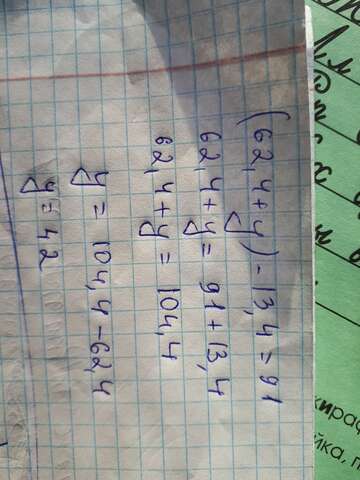 (62,4+y)-13,4=91
62,4+y=91+13,4
62,4+y=104,4
y=104,4-62,4
y=42